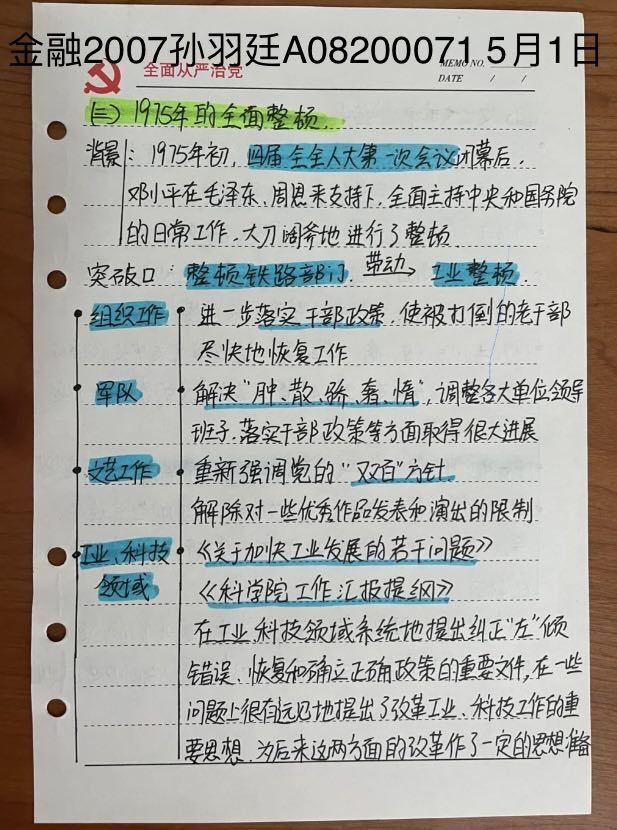 金融2007孙羽廷A08200071 5月1日
全面从严治党
MEMO NO.
DATE / /
(三) 1975年的全面整顿.
背景: 1975年初, 四届全全人大第一次会议闭幕后,
邓小平在毛泽东、周恩来支持下, 全面主持中央和国务院
的日常工作, 大刀阔斧地进行了整顿.
突破口: 整顿铁路部门 带动→ 工业整顿.
组织工作 · 进一步落实干部政策, 使被打倒的老干部
尽快地恢复工作
军队 · 解决"肿、散、骄、奢、惰", 调整各大单位领导
班子, 落实干部政策等方面取得很大进展
文艺工作 · 重新强调党的"双百"方针.
解除对一些优秀作品发表和演出的限制
工业、科技 · 《关于加快工业发展的若干问题》
领域 《科学院工作汇报提纲》
在工业、科技领域系统地提出纠正"左"倾
错误、恢复和确立正确政策的重要文件, 在一些
问题上很有远见地提出了改革工业、科技工作的重
要思想, 为后来这两方面的改革作了一定的思想准备